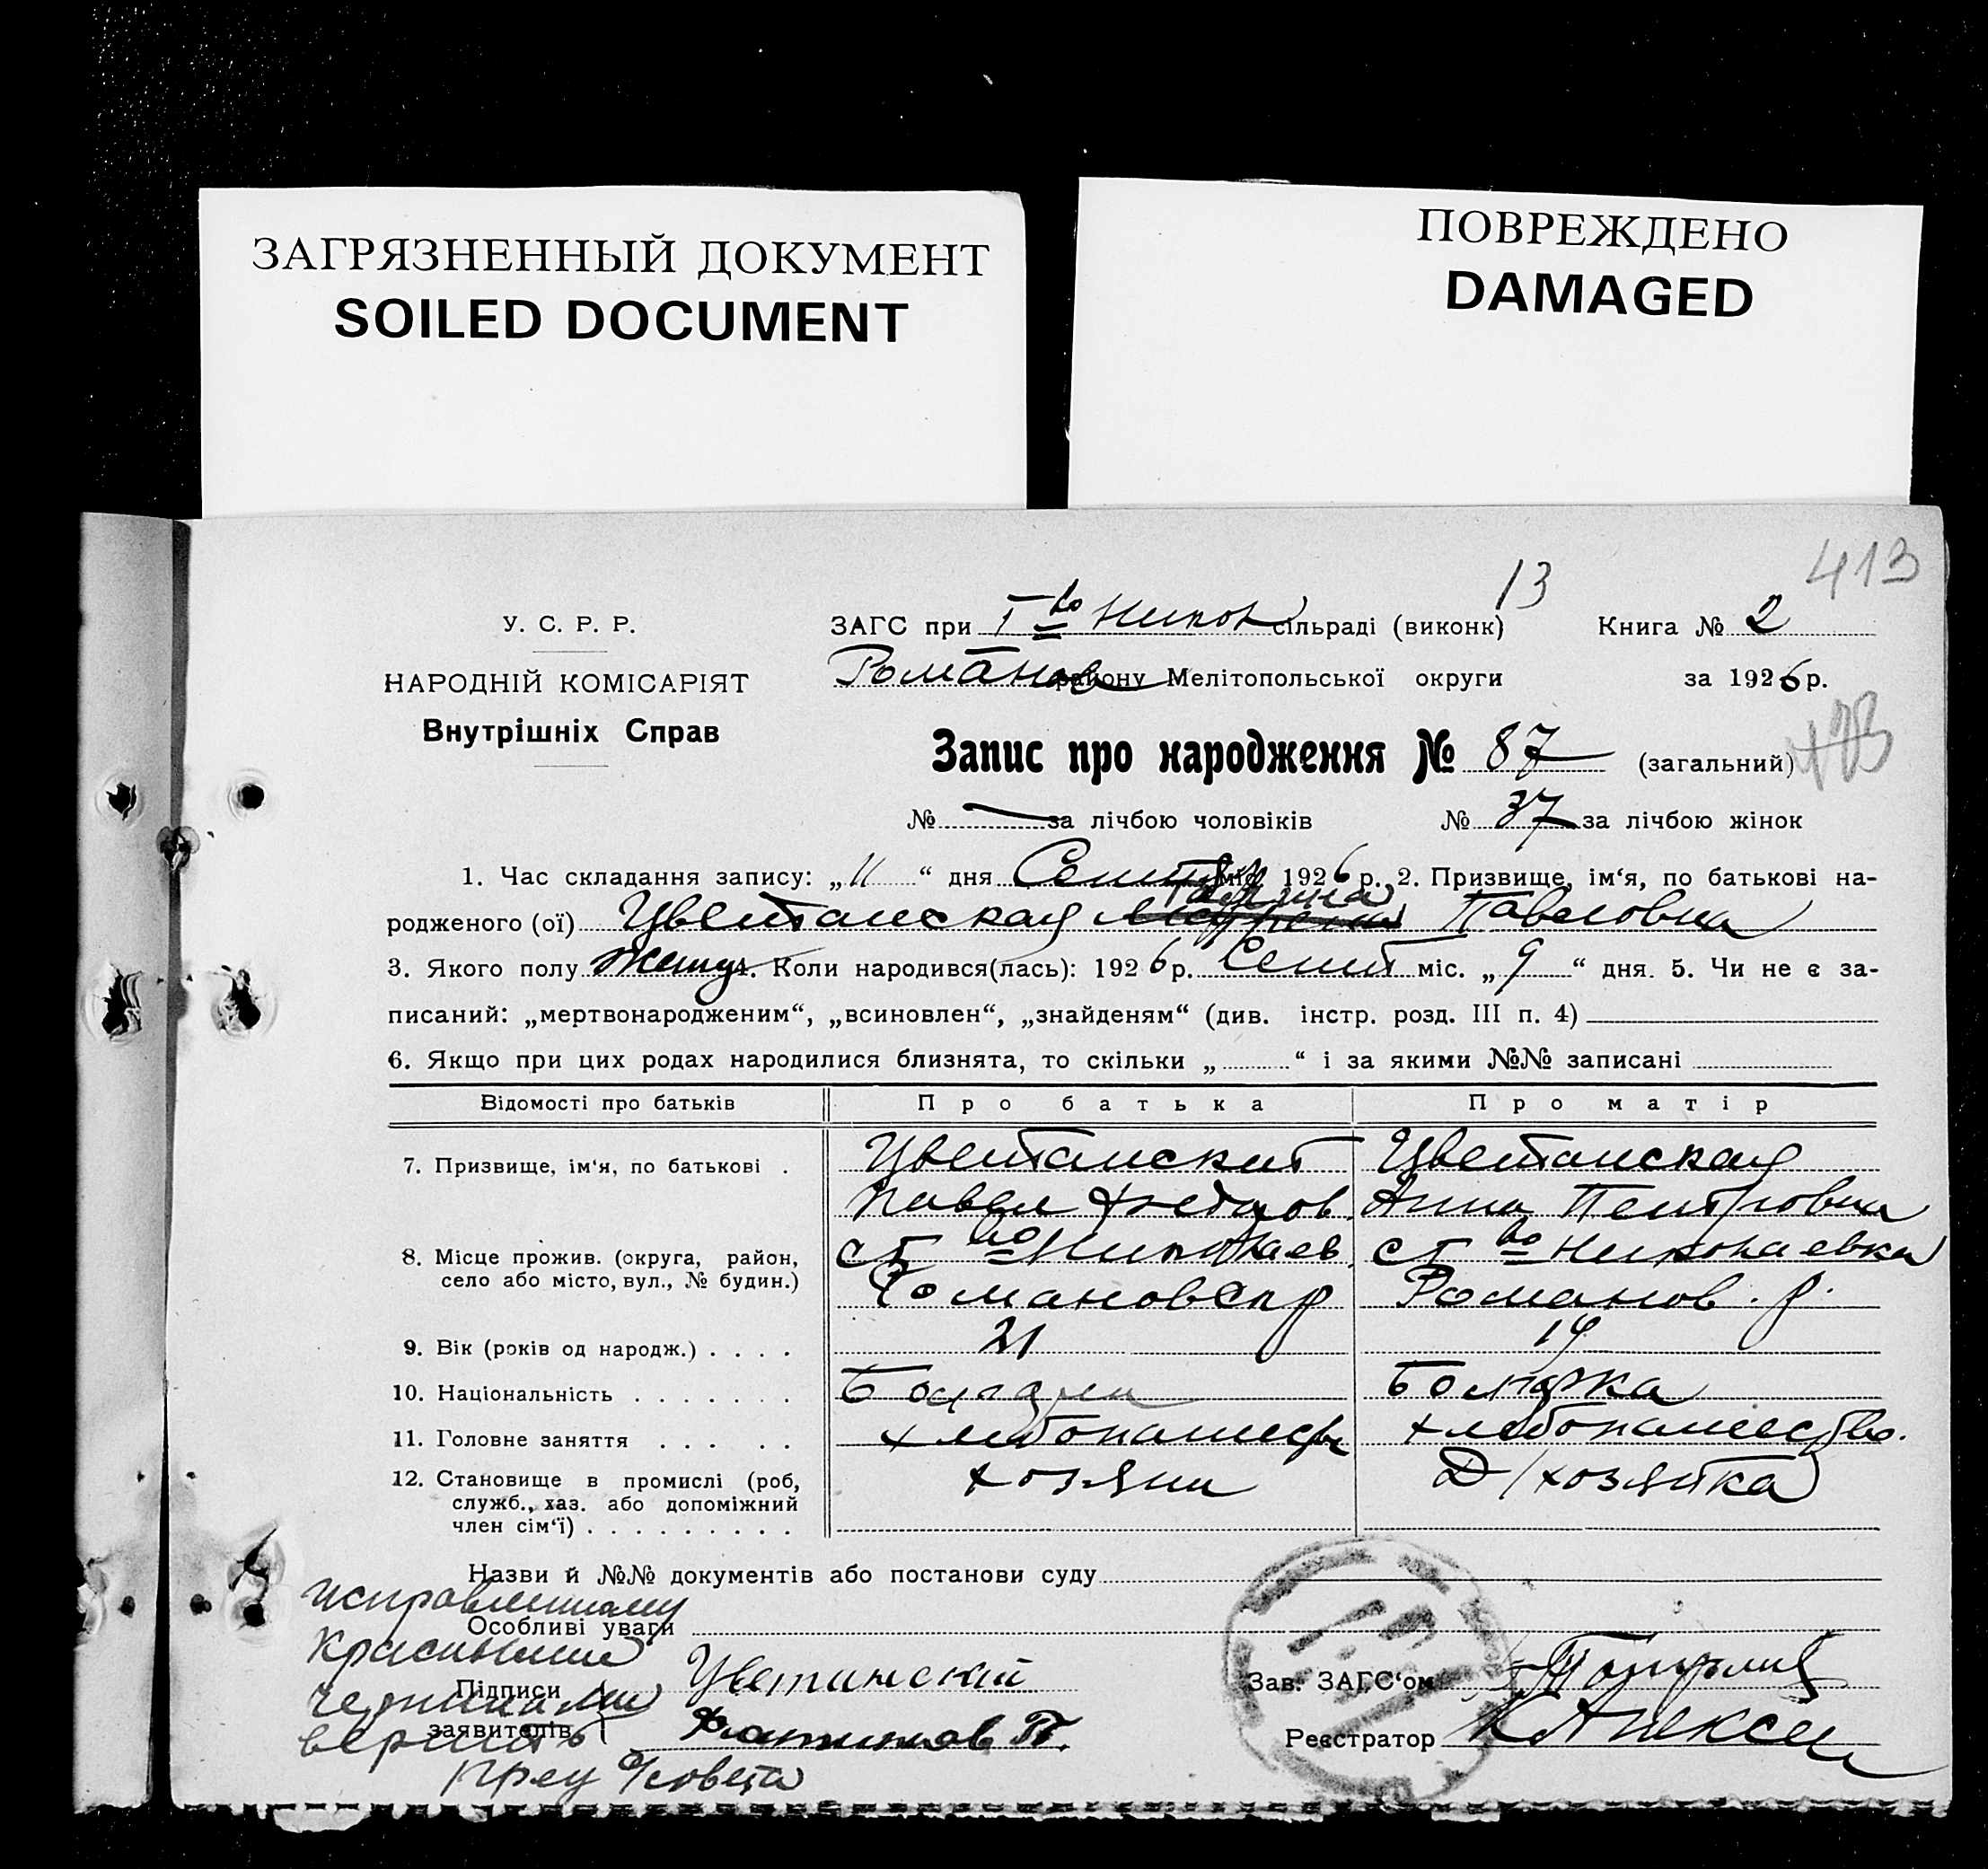 ЗАГРЯЗНЕННЫЙ ДОКУМЕНТ
SOILED DOCUMENT
ПОВРЕЖДЕНО
DAMAGED
413
13
У. С. Р. Р.
НАРОДНІЙ КОМІСАРІЯТ
Внутрішніх Справ
ЗАГС при сільраді (виконк) Книга № 2
Романов району Мелітопольської округи за 1926 р.
Запис про народження № 87 (загальний)
№ за лічбою чоловіків № 37 за лічбою жінок
1. Час складання запису: „11“ дня Сент міс. 1926 р. 2. Призвище, ім‘я, по батькові на-
Галина
родженого (ої) Цветанская Павловна
3. Якого полу 4. Коли народився(лась): 1926 р. Сент міс. „9“ дня. 5. Чи не є за-
писаний: „мертвонародженим“, „всиновлен“, „знайденям“ (див. інстр. розд. III п. 4)
6. Якщо при цих родах народилися близнята, то скільки „ “ і за якими №№ записані
Відомості про батьків Про батька Про матір
7. Призвище, ім‘я, по батькові . Цветанский Цветанская
Павел Анна Петровна
8. Місце прожив. (округа, район, с Николаев. с Николаевка
село або місто, вул., № будин.) Романов р Романов. р.
9. Вік (років од народж.) . . . . 21 19
10. Національність . . . . . . . Болгарин Болгарка
11. Головне заняття . . . . . хлебопашеств хлебопашество.
12. Становище в промислі (роб, хозяин Д/хозяйка
служб., хаз. або допоміжний
член сім‘ї) . . . . . . . . .
Назви й №№ документів або постанови суду
исправленному
Особливі уваги
красными
Підписи Цветанский Зав. ЗАГС‘ом
чернилами
заявителів Реєстратор
верить
пред с/совета